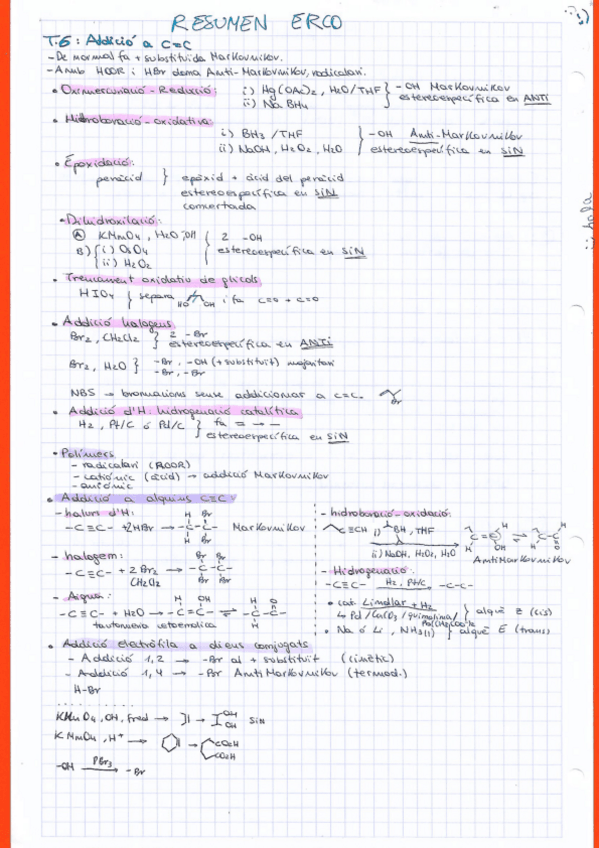 RESUMEN ERCO
T.6: Addició a C=C
- De normal fa + substituïda Markovnikov.
- Amb HOOR i HBr dona Anti-Markovnikov, radicalari.
• Oximercuriació-Reducció: i) Hg(OAc)2, H2O/THF } -OH Markovnikov
ii) NaBH4 estereoespecífica en ANTI
• Hidroboració-oxidativa
i) BH3/THF } -OH Anti-Markovnikov
ii) NaOH, H2O2, H2O estereoespecífica en SIN
• Epoxidació:
peràcid } epòxid + àcid del peràcid
estereoespecífica en SIN
concertada
• Dihidroxilació:
A) KMnO4, H2O, OH { 2 -OH
B) { i) OsO4 estereoespecífica en SIN
ii) H2O2
• Trencament oxidatiu de glicols
HIO4 } separa HO OH i fa C=O + C=O
• Addició halogens
Br2, CH2Cl2 } 2 -Br
estereoespecífica en ANTI
Br2, H2O } -Br, -OH (+ substituït) majoritari
-Br, -Br
NBS → bromacions sense addicionar a C=C. Br
• Addició d'H: hidrogenació catalítica
H2, Pt/C ó Pd/C } fa = → -
estereoespecífica en SIN
• Polímers
- radicalari (ROOR)
- catiònic (àcid) → addició Markovnikov
- aniònic
• Addició a alquins C≡C
- halurs d'H:
-C≡C- + 2HBr → -C-C- Markovnikov
H Br
H Br
- halogen:
-C≡C- + 2 Br2 → -C-C-
CH2Cl2
Br Br
Br Br
- Aigua:
-C≡C- + H2O → -C=C- ⇌ -C-C-
H OH
H O
H
tautomeria cetoenólica
- hidroboració-oxidació:
C≡CH i) BH, THF
ii) NaOH, H2O2, H2O
C=C ⇌ C-C
H OH H O
AntiMarkovnikov
- Hidrogenació:
-C≡C- H2, Pt/C → -C-C-
• cat. Lindlar + H2
↳ Pd/CaCO3/quinolina/ } alquè Z (cis)
• Na ó Li, NH3(l) } alquè E (trans)
• Addició electròfila a diens conjugats
- Addició 1,2 → -Br al + substituït (cinètic)
- Addició 1,4 → -Br AntiMarkovnikov (termod.)
H-Br
KMnO4, OH, Fred → OH OH SIN
KMnO4, H+ → COOH COOH
-OH PBr3 → -Br